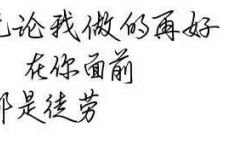 无论我做的再好
在你面前
都是徒劳